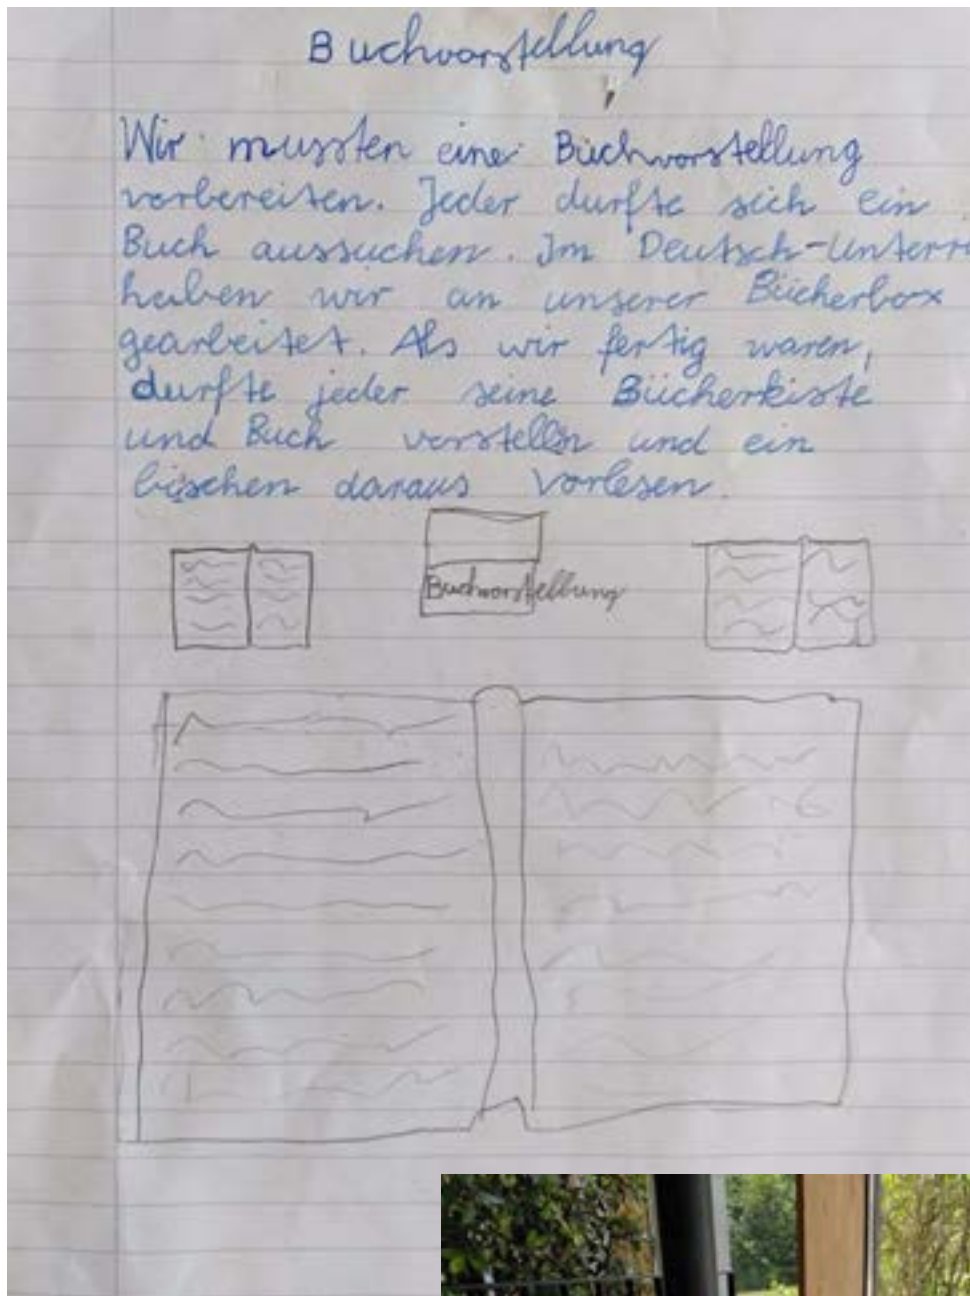 Buchvorstellung
Wir mussten eine Buchvorstellung
vorbereiten. Jeder durfte sich ein
Buch aussuchen. Im Deutsch-Unterr
haben wir an unserer Bücherbox
gearbeitet. Als wir fertig waren,
durfte jeder seine Bücherkiste
und Buch vorstelln und ein
bischen daraus Vorlesen.
Buchvorstellung